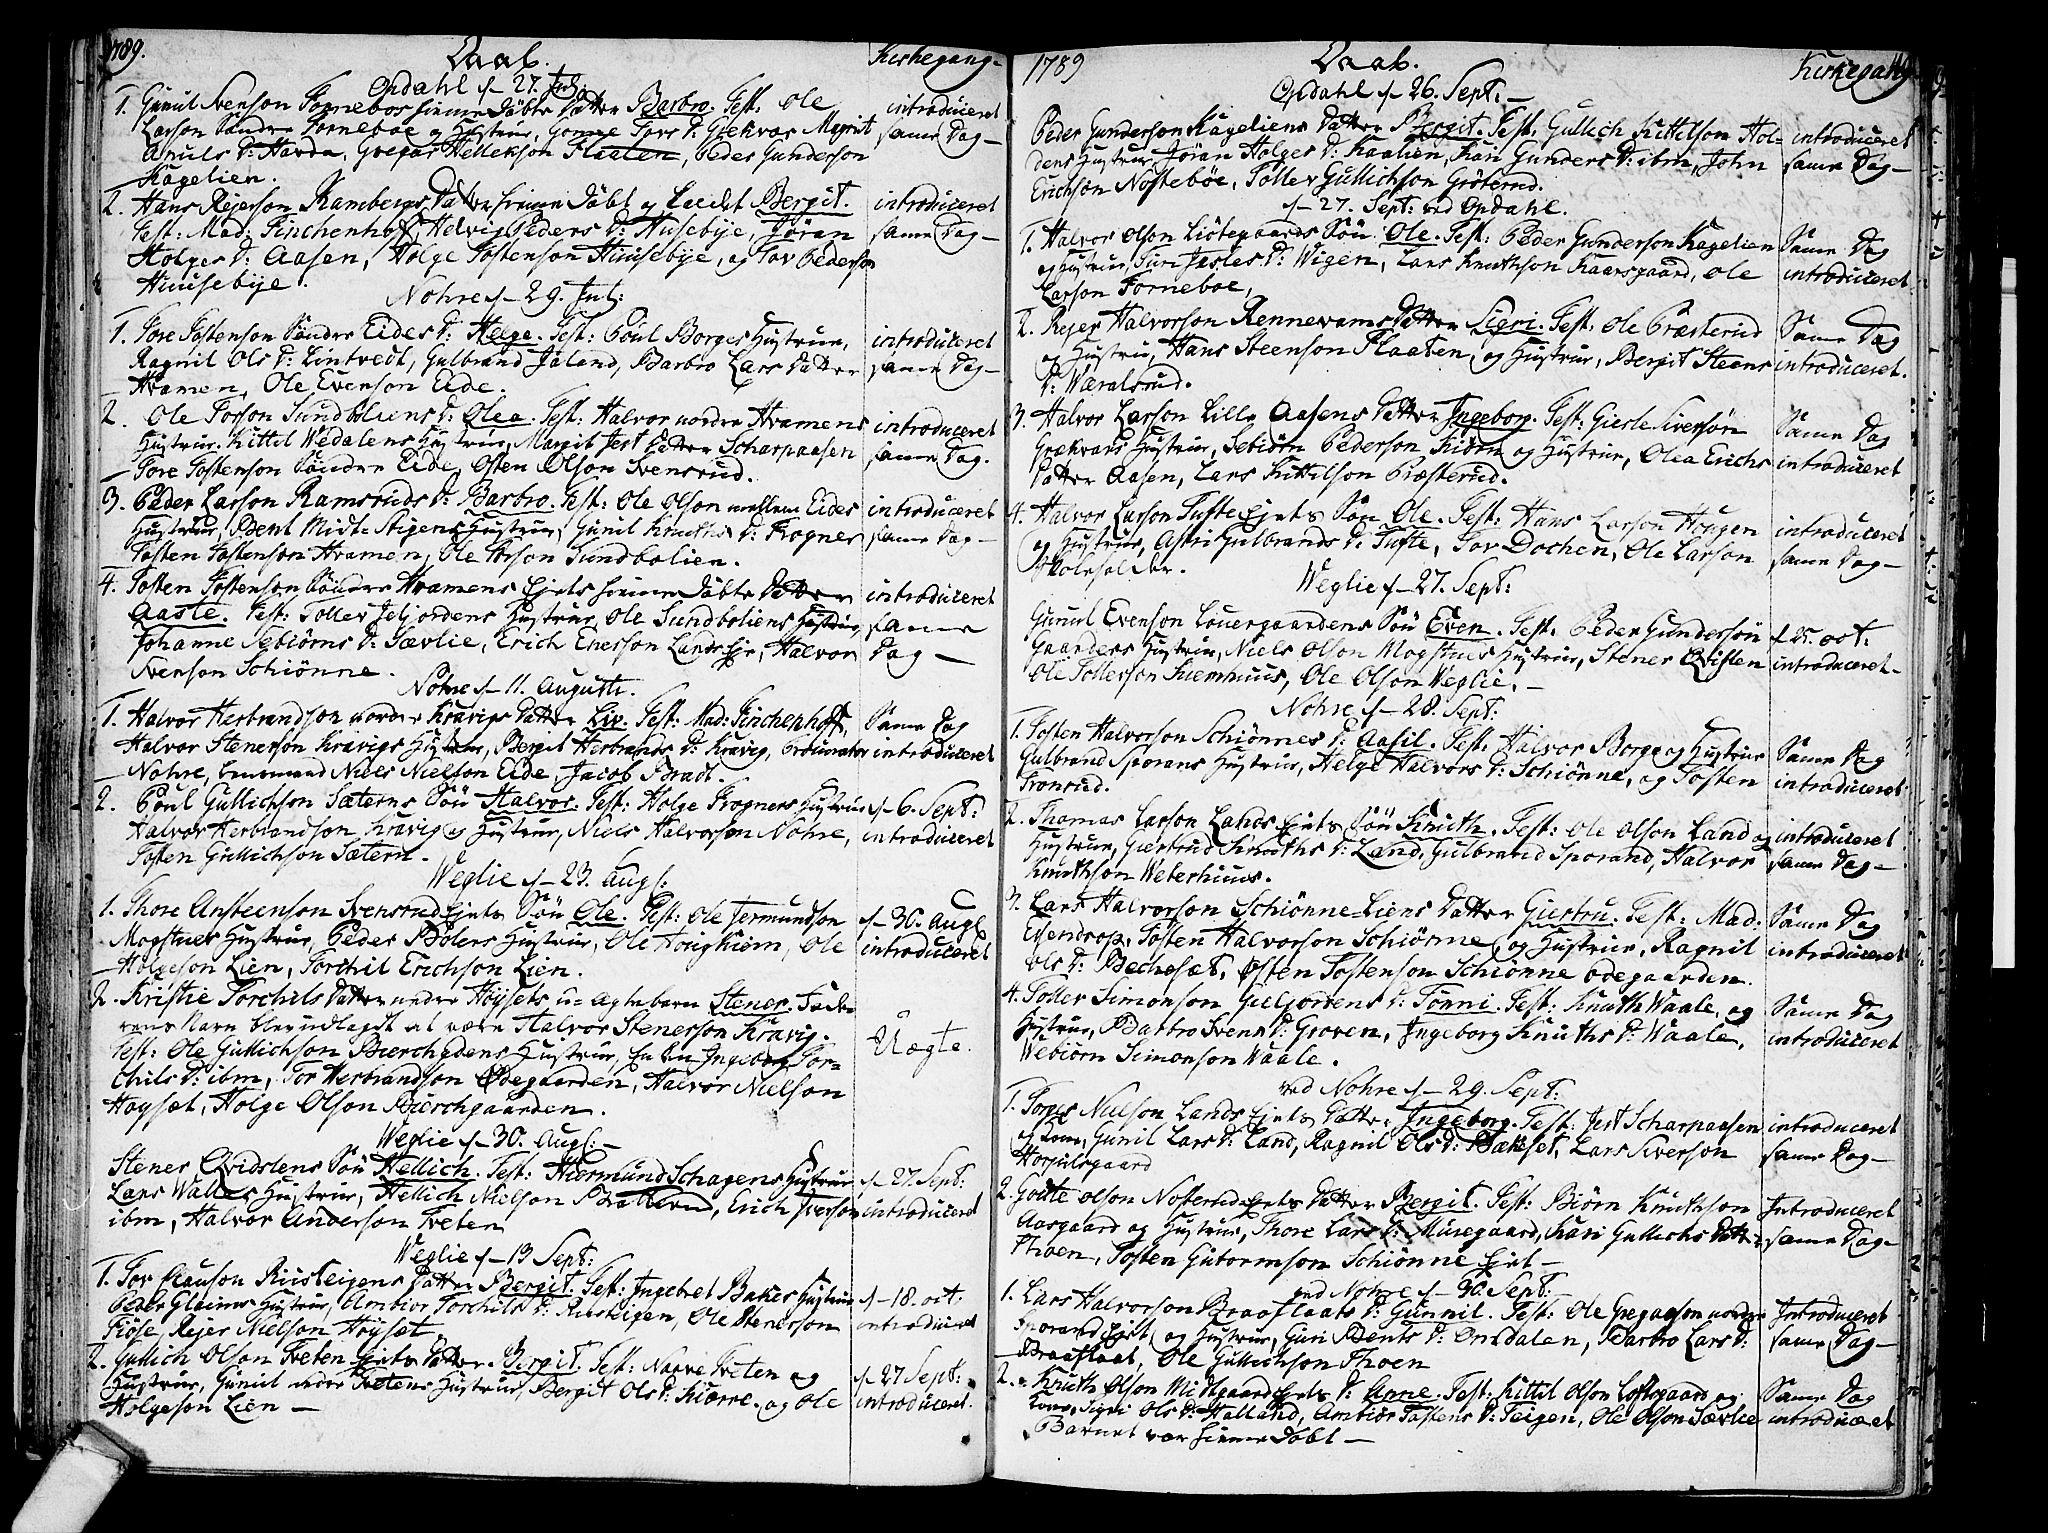 1789.
Daab.
Kirkegang
Opdahl d – 27. Jul:
1. Gunul Svenson Fornebos hiemmedøbte Datter Barbro. Test. Ole
Larson Søndre Forneboe og Hustrue, Gonne Tovs D: Grekvar Margrit
Anuls D: Havda, Gregar Hellekson Flaaten, Peder Gunderson
Kagelien.
introduceret
same Dag –
2. Hans Rejerson Rambergs Datter hiemmedøbt og kaldet Bergit.
Test: Mad: Finchenhoff, Helvig Peders D: Husebye, Jøran
Holges D: Aasen, Holge Tostenson Huusebye, og Tov Pederson
Huusebye.
introduceret
same Dag –
Nohre d – 29. Jul:
1. Tore Tostenson Søndre Eides D: Helge. Test: Poul Borges Hustrue,
Ragnil Ols D: Lintvedt, Gulbrand Jøland, Barbro Lars Datter
Hvamen, Ole Evenson Eide.
introduceret
same Dag –
2. Ole Torson Sundboliens D: Olea. Test: Halvor nordre Hvamens
Hustrue. Kittil Wedalens Hustrue, Margit Jest Datter Scharpaasen
Tore Tostenson Søndre Eide, Østen Olson Svensrud.
introduceret
same Dag.
3. Peder Larson Ramsruds D: Barbro. Test: Ole Olson mellem Eides
Hustrue, Bent Midt-Stigens Hustrue, Gunil Knuths D: Frogner
Tosten Tostenson Hvamen, Ole Torson Sundbolien.
introduceret
same Dag –
4. Tosten Tostenson Søndre Hvamens Ejets hiemmedøbte Datter
Aaste. Test: Toller Jeljordens Hustrue, Ole Sundboliens Hustrue
Johanne Sebiørns D: Sævlie, Erich Enerson Lands Eje, Halvor
Svenson Schiønne.
introduceret
same
Dag –
Nohre d – 11. Augusti.
1. Halvor Herbrandson nordre Kravigs Datter Liv. Test: Mad: Finchenhoff,
Halvor Stenerson Kravigs Hustrue, Bergit Herbrands D: Kravig, Ordinator
Nohre, Lensmand Niels Nielson Eide, Jacob Bradt.
Same Dag
introduceret
2. Poul Gullichson Sæterns Søn Halvor. Test: Holge Frogners Hustrue
Halvor Herbrandson Kravig og Hustrue, Niels Halvorson Nohre,
Tosten Gullichson Sætern.
d – 6. Sept:
introduceret
Weglie d – 23. Augs:
1. Thore Ansteenson Svensrud Ejets Søn Ole. Test: Ole Jermundson
Mogstues Hustrue, Peder Bølers Hustrue, Ole Horighiem, Ole
Holgeson Lien, Torchil Erichson Lien.
d – 30. Augs
introduceret
2. Kristie Torchils Datter nedre Høysets u-Ægte barn Stener. Fade-
rens Navn blev udlagdt at være Halvor Stenerson Kravig.
Test: Ole Gullichson Bierchgdens Hustrue, Ingeborg Tor-
chils D: ibm, Tor Herbrandson Ødegaarden, Halvor Nielson
Høyset, Holge Olson Bierchgaarden.
Uægte.
Weglie d – 30. Augs: –
Stener Qvislens Søn Hellich. Test: Hiermund Schagens Hustrue,
Lars Walles Hustrue, Hellich Nielson Bratterud, Erich Iverson
ibm, Halvor Anderson Tveten
d – 27. Sept:
introduceret
Weglie d – 13 Sept:
1. Tov Clauson Rusteigens Datter Bergit. Test: Ingebret Bakes Hustrue
Peder Glaims Hustrue, Ambior Torchils D: Rusteigen, Ole Stenerson
Fiøse, Rejer Nielson Høyset
d – 18. oct:
introduceret
2. Gullich Olson Tveten Ejets Datter Bergit. Test: Narve Tveten og
Hustrue, Gunul nedre Tvetens Hustrue, Bergit Ols D: Kiørre, og Ole
Holgeson Lien –
d – 27 Sept:
introduceret.
1789
Daab.
Kirkegang
Opdahl d – 26. Sept: –
Peder Gunderson Kageliens Datter Bergit. Test, Gullich Kittilson Hol-
dens Hustrue, Jøran Holges D: Kaalien, Kari Gunders D: ibm, John
Erichson Nøstebøe, Toller Gullichson Grøterud.
introduceret
same Dag –
d – 27. Sept: ved Opdahl.
1. Halvor Olson Liøtegaards Søn Ole. Test: Peder Gunderson Kagelien
og Hustrue, Guri Jestes D: Wigen, Lars Knuthson Kaarsgaard, Ole
Larson Forneboe,
Same Dag
introduceret
2. Rejer Halvorson Rennevams Datter Sigri. Test: Ole Præsterud
og Hustru, Hans Steenson Flaaten, og Hustrue, Bergit Steens
D: Wæralsrud.
Same Dag
introduceret.
3. Halvor Larson Lille Aasens Datter Ingeborg. Test: Gisle Siverson
Grækvars Hustrue, Sebiørn Pederson Kiørn og Hustrue, Olea Erichs
Datter Aasen, Lars Kittilson Præsterud.
Same Dag
introduceret
4. Halvor Larson Tufte Ejets Søn Ole. Test: Hans Larson Hougen
og Hustrue, Astri Gulbrands D: Tufte, Tov Dochen, Ole Larson
Skoleholder.
introduceret
same Dag –
Weglie d – 27. Sept:
Gunul Evenson Louergaardens Søn Even. Test. Peder Gunderson
Gaarders Hustrue, Niels Olson Mogstues Hustrue, Stener Qvislen
Ole Tollerson Kiemhuus, Ole Olson Weglie. –
d – 25. oct:
introduceret –
Nohre d – 28. Sept:
1. Tosten Halvorson Schiønnes D: Aasil. Test: Halvor Borge og Hustrue
Gulbrand Sporans Hustrue, Helge Halvors D: Schiønne, og Tosten
Tronrud.
Same Dag
introduceret
2. Thomas Larson Lands Ejets Søn Knuth. Test: Ole Olson Land og
Hustrue, Giertrud Knuths D: Land, Gulbrand Sporand, Halvor
Knuthson Weterhuus.
introduceret
same Dag –
3. Lars Halvorson Schiønne-Liens Datter Giertru. Test: Mad:
Esendrop, Tosten Halvorson Schiønne og Hustrue, Ragnil
Ols D: Bechesæt, Østen Tostenson Schiønne ødegaarden.
Same Dag
introduceret
4. Toller Simonson Gieljordens D: Tønni. Test: Knuth Waale, og
Hustrue, Barbro Svens D: Groven, Ingeborg Knuths D: Waale,
Webiørn Simonson Waale.
Same Dag
introduceret
ved Nohre d – 29. Sept:
1. Torger Nielson Lands Ejets Datter Ingeborg. Test: Jest Scharpaasen
og kone, Gunil Lars D: Land, Ragnil Ols D: Bækeset, Lars Siverson
Horpulsgaard
introduceret
same Dag –
2. Goute Olson Nøterud Ejets Datter Bergit. Test: Biørn Knuthson
Aasgaard og Hustrue, Thore Lars D: Musegaard, Kari Gullichs Datter
Thoen, Tosten Gutormson Schiønne Ejet –
Introduceret
same Dag –
ved Nohre d – 30. Sept:
1. Lars Halvorson Braaflaats D: Gunnil. Test: Ole Gregarson nordre
Sporand Ejet og Hustrue, Guri Bents D: Ønsdalen, Barbro Lars D:
Braaflaat, Ole Gullichson Thoen
Introduceret
same Dag –
2. Knuth Olson Midtgaard Ejets D: Anne. Test: Kittil Olson Loftsgaard og
kone, Sigri Ols D: Halland, Ambior Tostens D: Teigen, Ole Olson Sævlie
Barnet var hiemme Døbt –
Same Dag
introducet